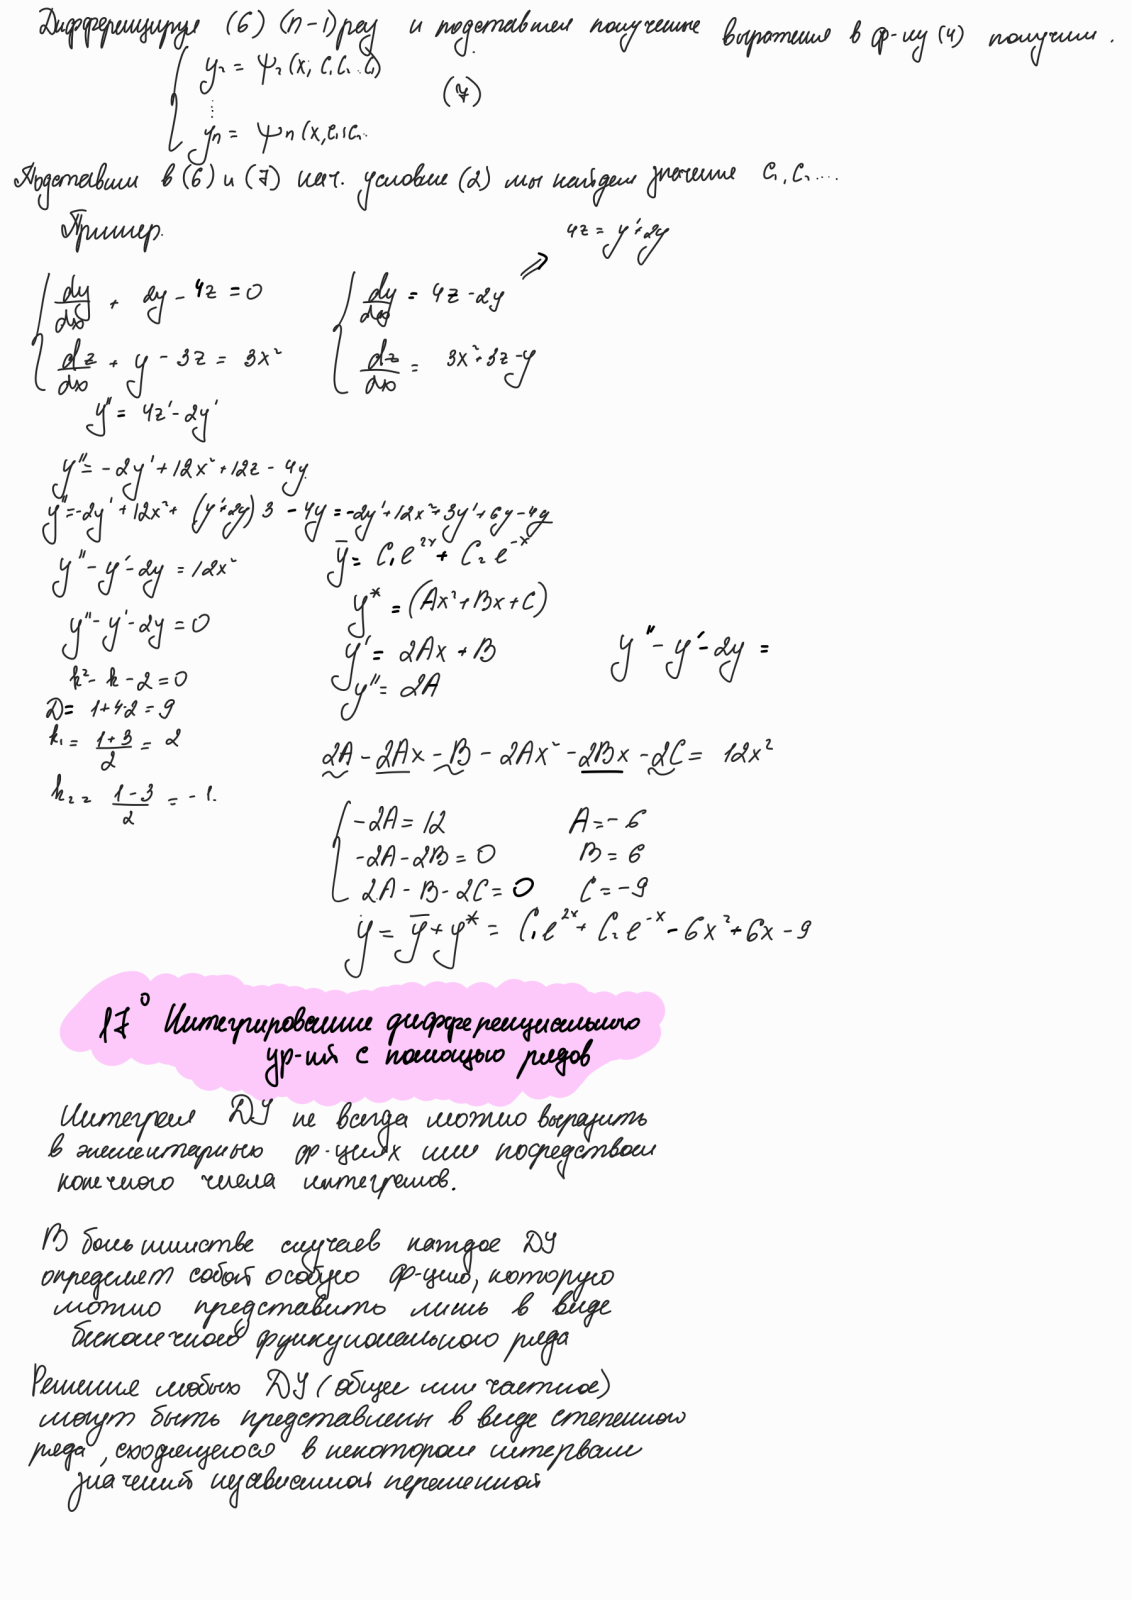 Дифференцируя (6) (n-1) раз и подставляя полученные выражения в ф-лу (4) получим.
{ y₂ = ψ₂(x, C₁C₂...Cₙ)
⋮ (7)
yn = ψn(x, C₁C₂..
Подставим в (6) и (7) нач. условие (2) мы найдем значение C₁, C₂....
Пример.
4z = y'+2y
{ dy/dx + 2y - 4z = 0 { dy/dx = 4z - 2y ⇒
dz/dx + y - 3z = 3x² dz/dx = 3x²+3z-y
y'' = 4z' - 2y'
y'' = -2y' + 12x² + 12z - 4y
y'' = -2y' + 12x² + (y'+2y)3 - 4y = -2y' + 12x² + 3y' + 6y - 4y
y'' - y' - 2y = 12x² ȳ = C₁e^{2x} + C₂e^{-x}
y'' - y' - 2y = 0 y* = (Ax²+Bx+C)
k² - k - 2 = 0 y' = 2Ax + B y'' - y' - 2y =
D = 1+4·2 = 9 y'' = 2A
k₁ = (1+3)/2 = 2 2A - 2Ax - B - 2Ax² - 2Bx - 2C = 12x²
k₂ = (1-3)/2 = -1.
{ -2A = 12 A = -6
-2A - 2B = 0 B = 6
2A - B - 2C = 0 C = -9
y = ȳ + y* = C₁e^{2x} + C₂e^{-x} - 6x² + 6x - 9
17° Интегрирование дифференциального
ур-ий с помощью рядов
Интеграл ДУ не всегда можно выразить
в элементарных ф-циях или посредством
конечного числа интегралов.
В большинстве случаев каждое ДУ
определяет собой особую ф-цию, которую
можно представить лишь в виде
бесконечного функционального ряда
Решения любых ДУ (общее или частное)
могут быть представлены в виде степенного
ряда, сходящегося в некотором интервале
значений независимой переменной